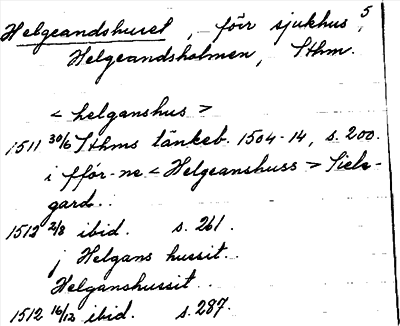 Helgeandshuset, förr sjukhus, 5
Helgeandsholmen, Sthm.
< helganshus >
1511 30/6 Sthms tänkeb. 1504-14, s. 200.
i fför-ne < Helgeanshuss > Siele-
gard..
1512 2/8 ibid. s. 261.
j Helgans hussit..
Helganshussit..
1512 16/12 ibid. s. 287.